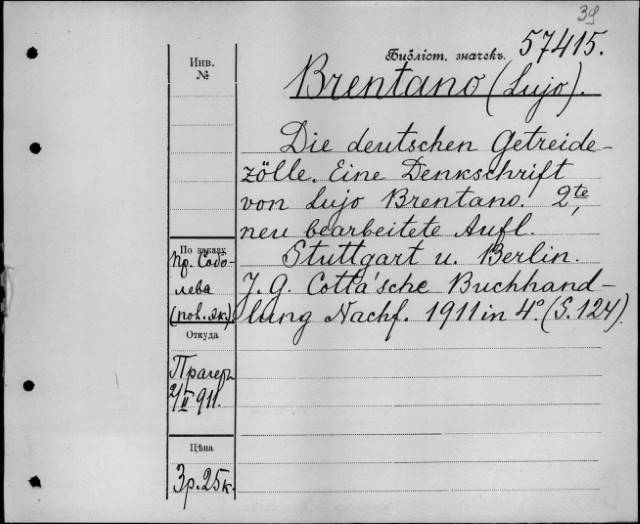 39
Библіот. значекъ. 57415.
Brentano (Lujo).
Die deutschen Getreide-
zölle. Eine Denkschrift
von Lujo Brentano. 2te,
neu bearbeitete Aufl.
Stuttgart u. Berlin.
J. G. Cotta'sche Buchhand-
lung Nachf. 1911 in 4° (S. 124).
Инв.
№
По заказу
пр. Собо-
лева
(пов. эк.)
Откуда
Прагеръ
2/II 911.
Цѣна
3р. 25к.